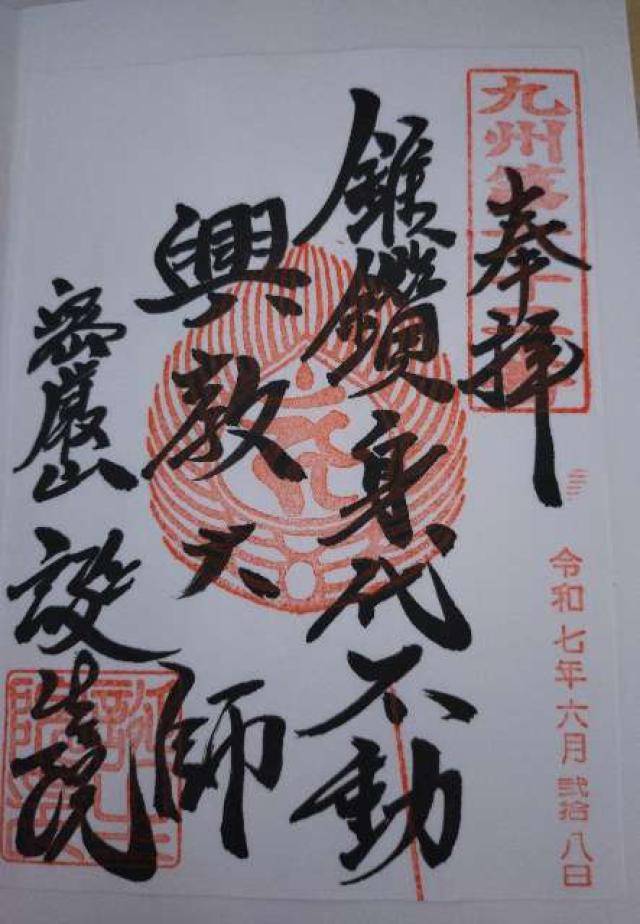 九州
奉拝
令和七年六月貳拾八日
錐鑚身代不動
興教大師
密厳山 誕生院